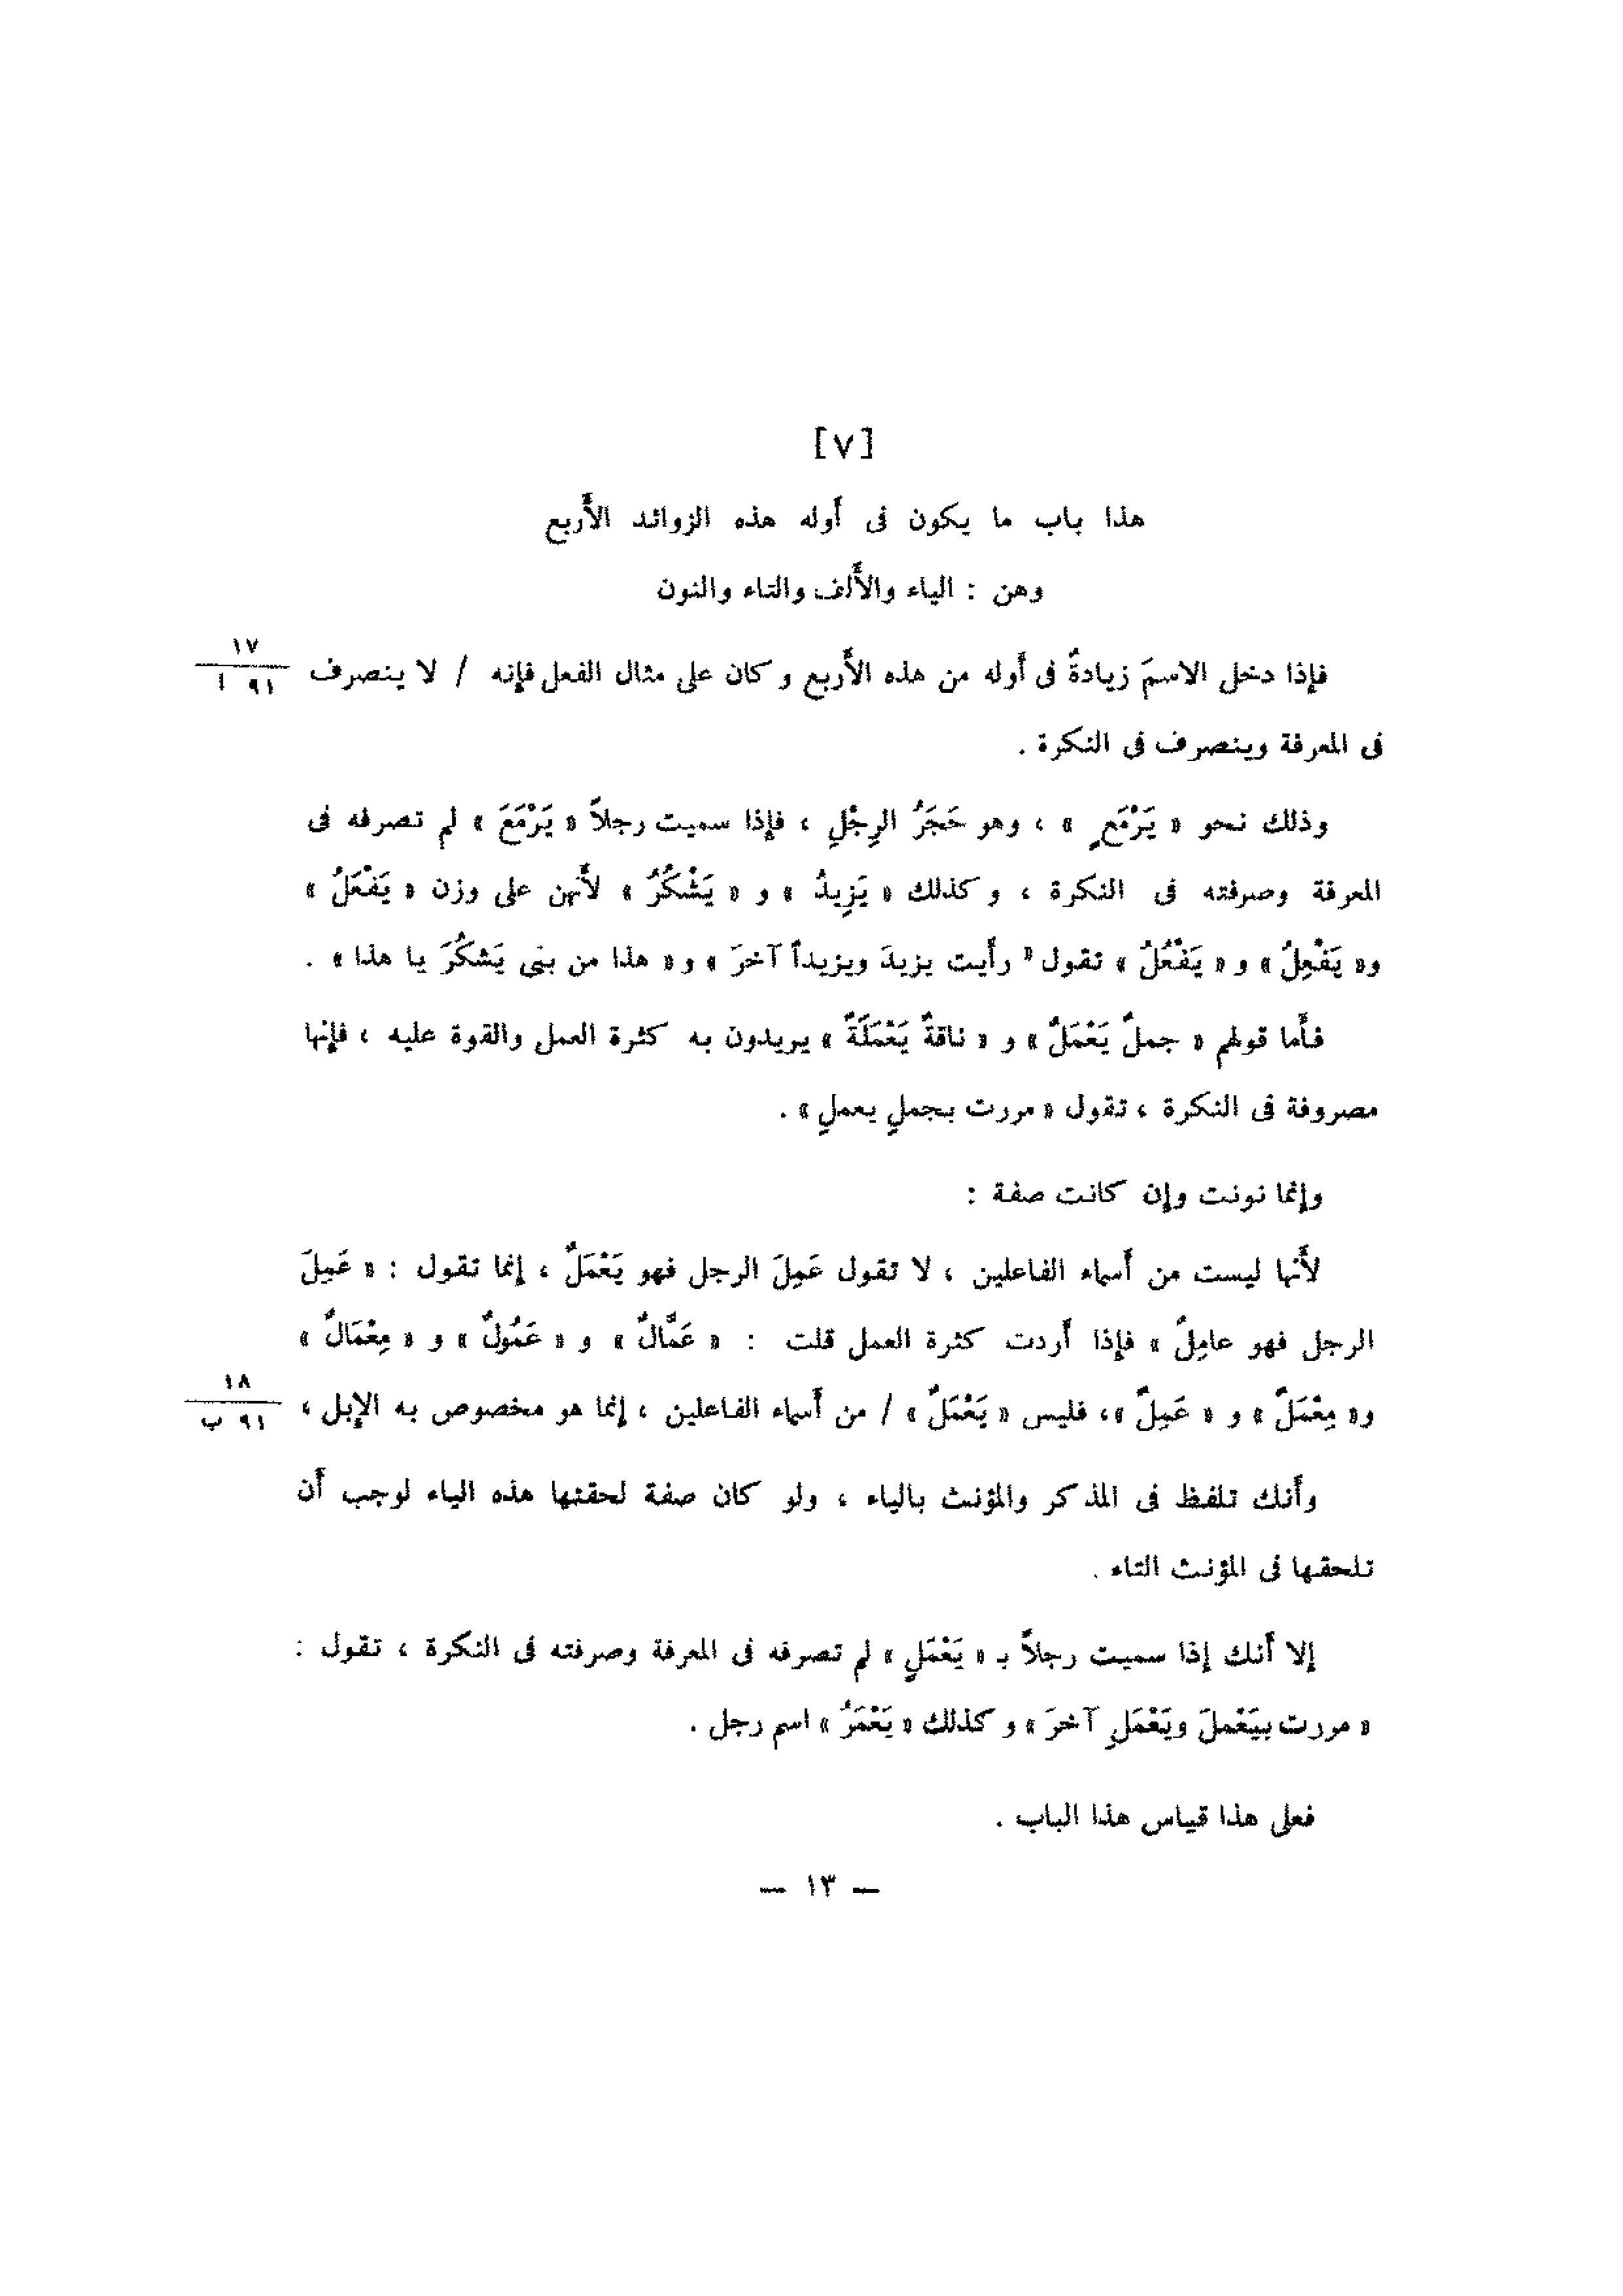 [٧]
هذا باب ما يكون فى أوله هذه الزوائد الأَربع
وهن : الياء والأَلف والتاء والنون
فإذا دخل الاسمَ زيادةٌ فى أوله من هذه الأَربع وكان على مثال الفعل فإنه / لا ينصرف
١٧
٩١ ا
فى المعرفة وينصرف فى النكرة .
وذلك نحو « يَرْمَعٍ » ، وهو حَجَرُ الرِجْلِ ، فإذا سميت رجلاً « يَرْمَعَ » لم تصرفه فى
المعرفة وصرفته فى النكرة ، وكذلك « يَزِيدُ » و « يَشْكُرُ » لأَنهن على وزن « يَفْعَلُ »
و« يَفْعِلُ » و « يَفْعُلُ » تقول « رأَيت يزيدَ ويزيداً آخرَ » و « هذا من بنى يَشكُرَ يا هذا » .
فأَما قولهم « جملٌ يَعْمَلٌ » و « ناقةٌ يَعْمَلَةٌ » يريدون به كثرة العمل والقوة عليه ، فإنها
مصروفة فى النكرة ، تقول « مررت بجملٍ يعملٍ » .
وإنما نونت وإن كانت صفة :
لأَنها ليست من أَسماء الفاعلين ، لا تقول عَمِلَ الرجل فهو يَعْمَلٌ ، إنما تقول : « عَمِلَ
الرجل فهو عامِلٌ » فإذا أَردت كثرة العمل قلت : « عَمَّالٌ » و « عَمُولٌ » و « مِعْمَالٌ »
و« مِعْمَلٌ » و « عَمِلٌ » ، فليس « يَعْمَلٌ » / من أَسماء الفاعلين ، إنما هو مخصوص به الإبل ،
١٨
٩١ ب
وأَنك تلفظ فى المذكر والمؤنث بالياء ، ولو كان صفة لحقتها هذه الياء لوجب أَن
تلحقها فى المؤنث التاء .
إلا أَنك إذا سميت رجلاً بـ « يَعْمَلٍ » لم تصرفه فى المعرفة وصرفته فى النكرة ، تقول :
« مررت بِيَعْملَ ويَعْمَلٍ آخرَ » وكذلك « يَعْمَرُ » اسم رجل .
فعلى هذا قياس هذا الباب .
— ١٣ —